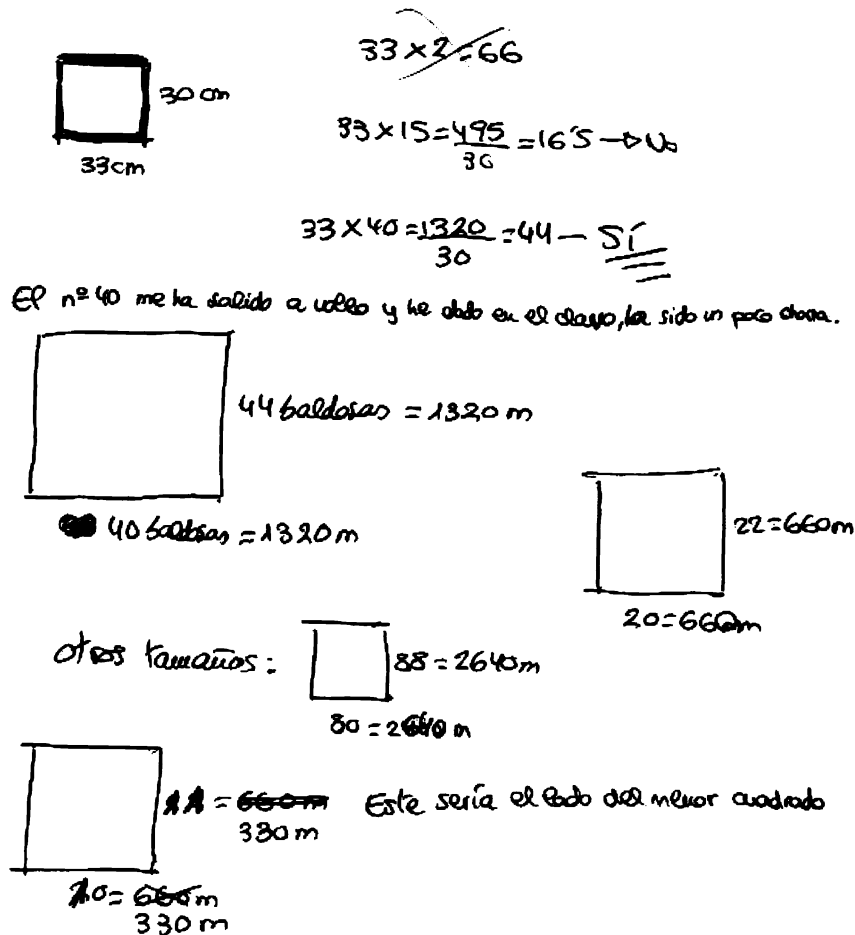 33 x 2 = 66
30 cm
33 cm
33 x 15 = 495/30 = 16'5 → No
33 x 40 = 1320/30 = 44 — Sí
El nº 40 me ha salido a voleo y he dado en el clavo, ha sido un poco chorra.
44 baldosas = 1320 m
40 baldosas = 1320 m
22 = 660 m
20 = 660 m
otros tamaños:
88 = 2640 m
80 = 2640 m
11 = 660 m
330 m
Este sería el lado del menor cuadrado
10 = 660 m
330 m